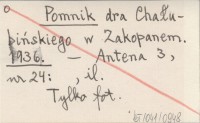 Pomnik dra Chału-
bińskiego w Zakopanem.
1936. — Antena 3,
nr 24: , il.
Tylko fot.